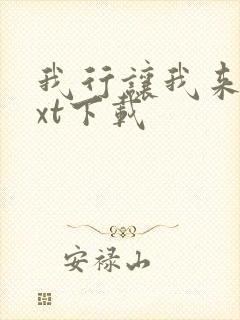 我行讓我来
xt下載
安禄山